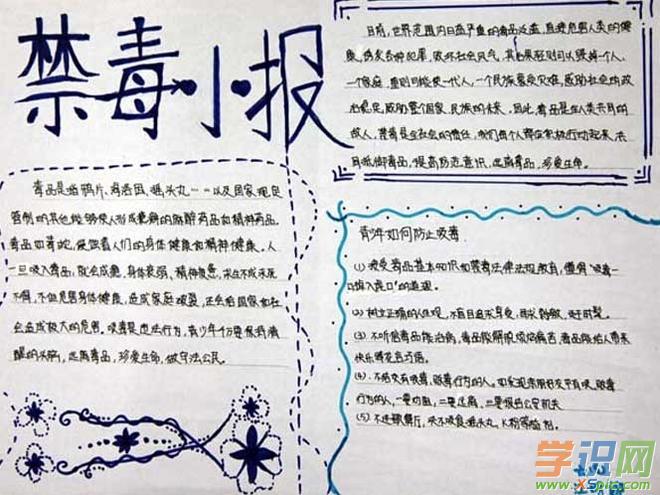 禁毒小报
目前,世界范围内日益严重的毒品泛滥,直接危害人类的健
康,诱发各种犯罪,败坏社会风气,其后果轻则可以毁掉一个人、
一个家庭,重则可能使一代人,一个民族蒙受灾难,威胁社会的政
治稳定,威胁整个国家、民族的未来。因此,毒品是全人类共同的
敌人,禁毒是全社会的责任,我们每个人都应积极行动起来,共
同抵御毒品,提高防范意识,远离毒品,珍爱生命。
毒品是指鸦片、海洛因、摇头丸……以及国家规定
管制的其他能够使人形成瘾癖的麻醉药品和精神药品。
毒品如毒蛇,侵蚀着人们的身体健康和精神健康。人
一旦吸入毒品,就会成瘾,身体衰弱、精神
不但危害身体健康,造成家庭破裂,还会给国家和社
会造成极大的危害。吸毒是违法行为,青少年千万要保持清
醒的头脑,远离毒品,珍爱生命,做守法公民。
青少年如何防止吸毒
(1)接受毒品基本知识和禁毒法律法规教育,懂得“吸毒一
口,掉入虎口”的道理。
(2)树立正确的人生观,不盲目追求享受,寻求刺激,赶时髦。
(3)不听信毒品能治病,毒品能解脱烦恼痛苦,毒品能给人带来
快乐等花言巧语。
(4)不结交有吸毒、贩毒行为的人。如发现亲朋好友中有吸、贩毒
行为的人,一要劝阻,二要远离,三要报告公安机关
(5)不进歌舞厅,决不吸食摇头丸、K粉等
学识网
www.xSpic.com